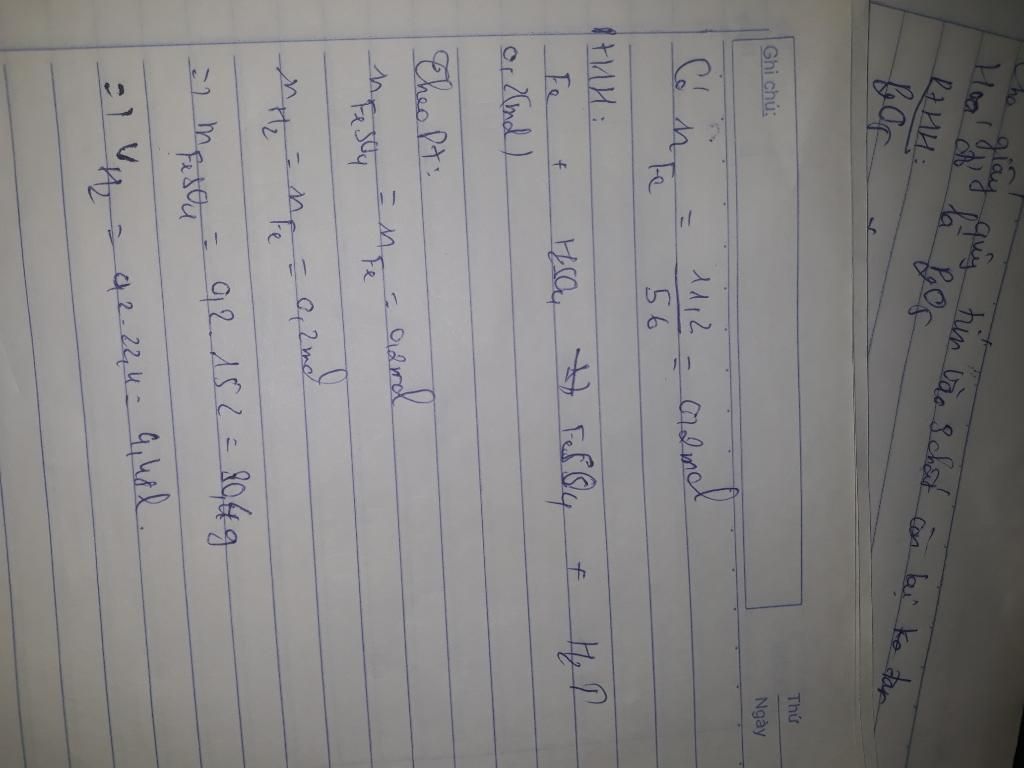 Ghi chú:
Thứ
Ngày
Có n Fe = 11,2 / 56 = 0,2mol
PTHH:
Fe + H2SO4 → FeSO4 + H2↑
0,2(mol)
Theo Pt:
n FeSO4 = n Fe = 0,2mol
n H2 = n Fe = 0,2mol
=> m FeSO4 = 0,2 . 152 = 30,4g
=> V H2 = 0,2 . 22,4 = 4,48l.
giấy quỳ tím vào 3 chất còn lại
Hoá đỏ là P2O5
PTHH:
P2O5